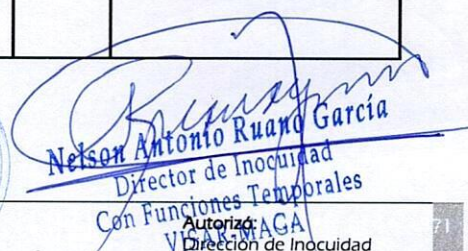 Nelson Antonio Ruano García
Director de Inocuidad
Con Funciones Temporales
VISAR-MAGA
Autorizó:
Dirección de Inocuidad
71